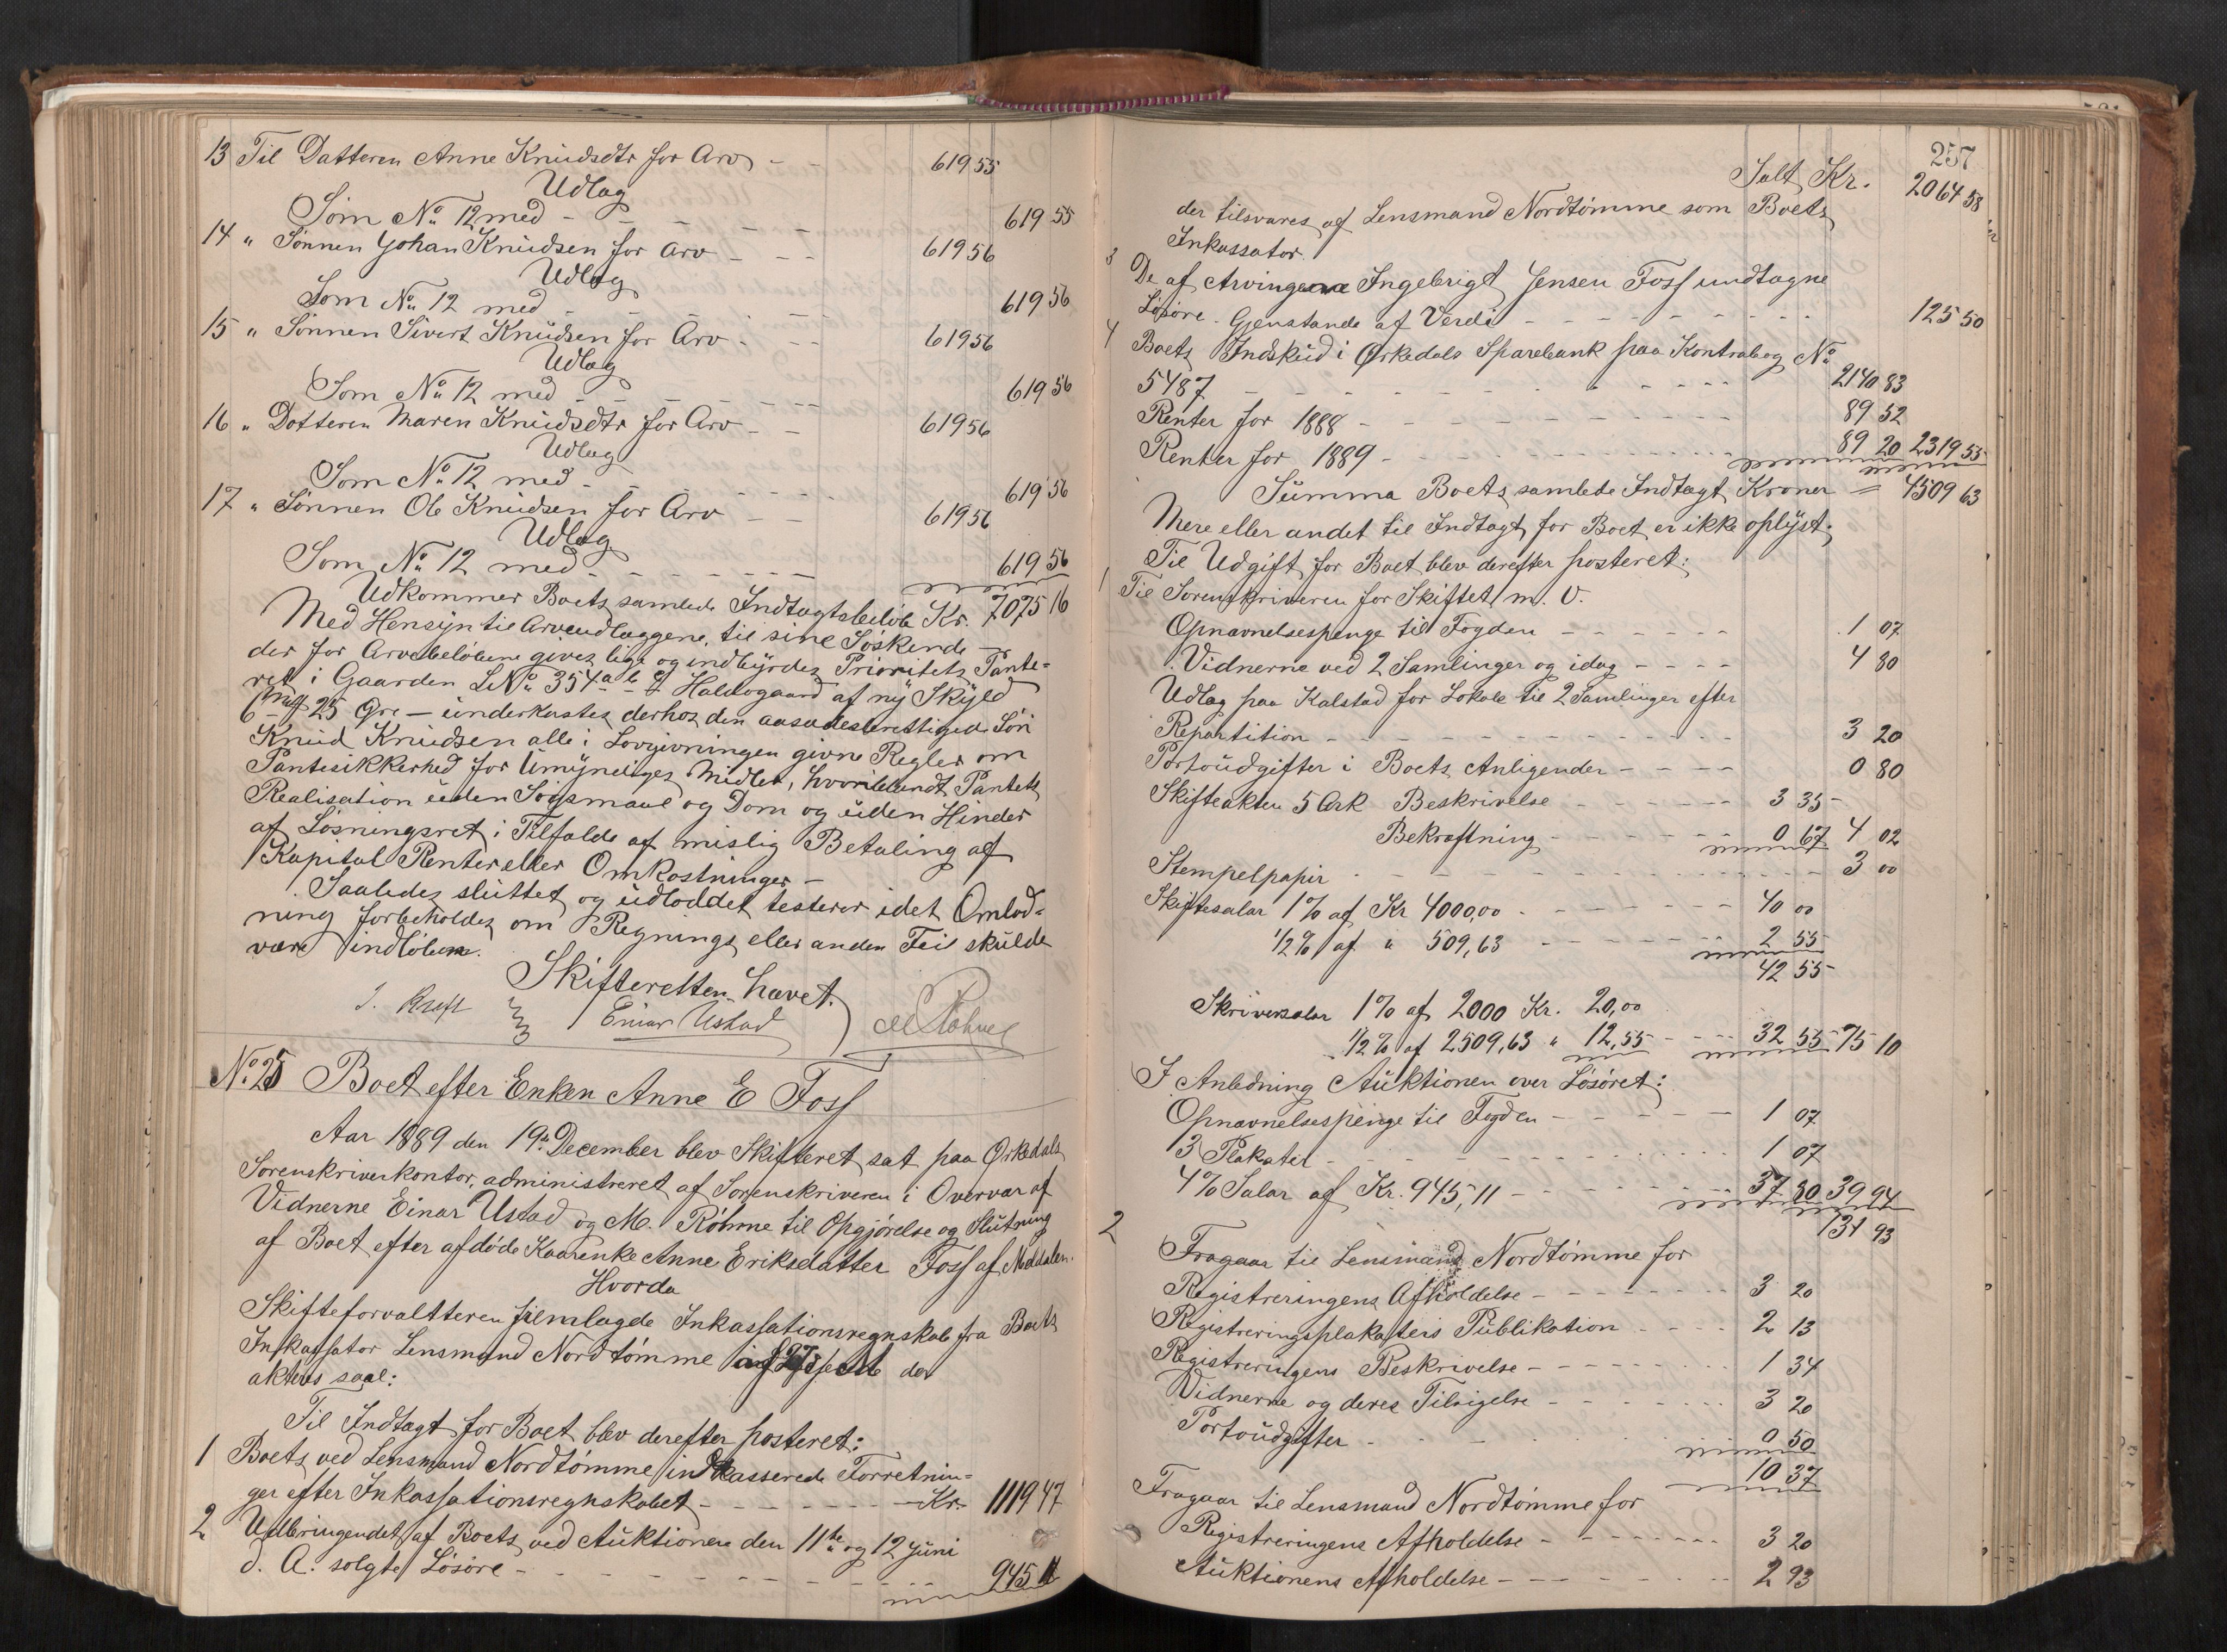 13 Til Datteren Anne Knudsdtr for Arv - - 619 55
Udlæg
Som No 12 med - - - - - 619 55
14 " Sönnen Johan Knudsen for Arv - - - 619 56
Udlæg
Som No 12 med - - - - - 619 56
15 " Sönnen Sivert Knudsen for Arv - - - 619 56
Udlæg
Som No 12 med - - - - - 619 56
16 " Datteren Maren Knudsdtr for Arv - - 619 56
Udlæg
Som No 12 med - - - - - 619 56
17 " Sönnen Ole Knudsen for Arv - - 619 56
Udlæg
Som No 12 med - - - - - 619 56
Udkommer Boets samlede Indtægtsbelöb Kr. 7075 16
Med Hensyn til Arveudlæggene til sine Söskende -
der for Arvebelöbene gives lige og indbyrdes Prioritets Pante-
ret i Gaarden LNo 354 a b Haldogaard af ny Skyld
6 Mrk 25 Öre - underkastes derhos den aasædesberettigede Sön
Knud Knudsen alle i Lovgivningen givne Regler om
Pantesikkerhed for Umyndiges Midler, hvoriblandt Pantets
Realisation uden Sögsmaal og Dom og uden Hinder
af Lösningsret i Tilfælde af mislig Betaling af
Kapital Renter eller Omkostninger -
Saaledes sluttet og udloddet testerer idet Omlod-
ning forbeholdes om Regnings eller anden Feil skulde
være indlöben.
Skifteretten hævet.
J. Kraft Einar Ustad M Röhme
No 25 Boet efter Enken Anne E Foss
Aar 1889 den 19de December blev Skifteret sat paa Örkedals
Sorenskriverkontor, administreret af Sorenskriveren i Overvær af
Vidnerne Einar Ustad og M. Röhme til Opgjörelse og Slutning
af Boet efter afdöde Kaarenke Anne Eriksdatter Foss af Meldalen.
Hvorda
Skifteforvaltteren fremlagde Inkassationsregnskab fra Boets
Inkassator Lensmand Nordtömme der
akteres saal:
Til Indtægt for Boet blev derefter posteret:
1 Boets ved Lensmand Nordtömme indkasserede Forretnin-
ger efter Inkassationsregnskabet - - - - - Kr. 1119 47
2 Udbringendet af Boets ved Auktionen den 11te og 12 Juni
d. A. solgte Lösöre - - - - - 945 11
257
Ialt Kr. 2064 58
der tilsvares af Lensmand Nordtömme som Boets
Inkassator.
3 De af Arvingerne Ingebrigt Jensen Foss undtagne
Lösöre - Gjenstande af Verdi - - - - - 125 50
4 Boets Indskud i Örkedals Sparebank paa Kontrabog No
5487 - - - - - 2140 83
Renter for 1888 - - - - - 89 52
Renter for 1889 - - - - - 89 20 2319 55
Summa Boets samlede Indtægt Kroner = 4509 63
Mere eller andet til Indtægt for Boet er ikke oplyst.
Til Udgift for Boet blev derefter posteret:
1 Til Sorenskriveren for Skiftet m. V.
Opnævnelsespenge til Fogden - - - - - 1 07
Vidnerne ved 2 Samlinger og idag - - - - 4 80
Udlæg paa Kalstad for Lokale til 2 Samlinger efter
Repartition - - - - - 3 20
Portoudgifter i Boets Anligender - - - - 0 80
Skifteakten 5 Ark Beskrivelse - - - - - 3 35
Bekræftning - - - - - 0 67 4 02
Stempelpapir - - - - - 3 00
Skiftesalær 1 % af Kr 4000,00 - - - - - 40 00
1/2 % af " 509,63 - - - - - 2 55
42 55
Skriversalær 1 % af 2000 Kr. 20,00
1/2 % af 2509,63 " 12,55 - - - 32 55 75 10
I Anledning Auktionen over Lösöret:
Opnævnelsespenge til Fogden - - - - - 1 07
3 Plakater - - - - - 1 07
4 % Salær af Kr. 945,11 - - - - - 37 80 39 94
131 93
2 Fragaar til Lensmand Nordtömme for
Registreringens Afholdelse - - - - - 3 20
Registreringsplakaters Publikation - - - - 2 13
Registreringens Beskrivelse - - - - - 1 34
Vidnerne og deres Tilsigelse - - - - - 3 20
Portoudgifter - - - - - 0 50
10 37
Fragaar til Lensmand Nordtömme for
Registreringens Afholdelse - - - - - 3 20
Auktionens Afholdelse - - - - - 2 93